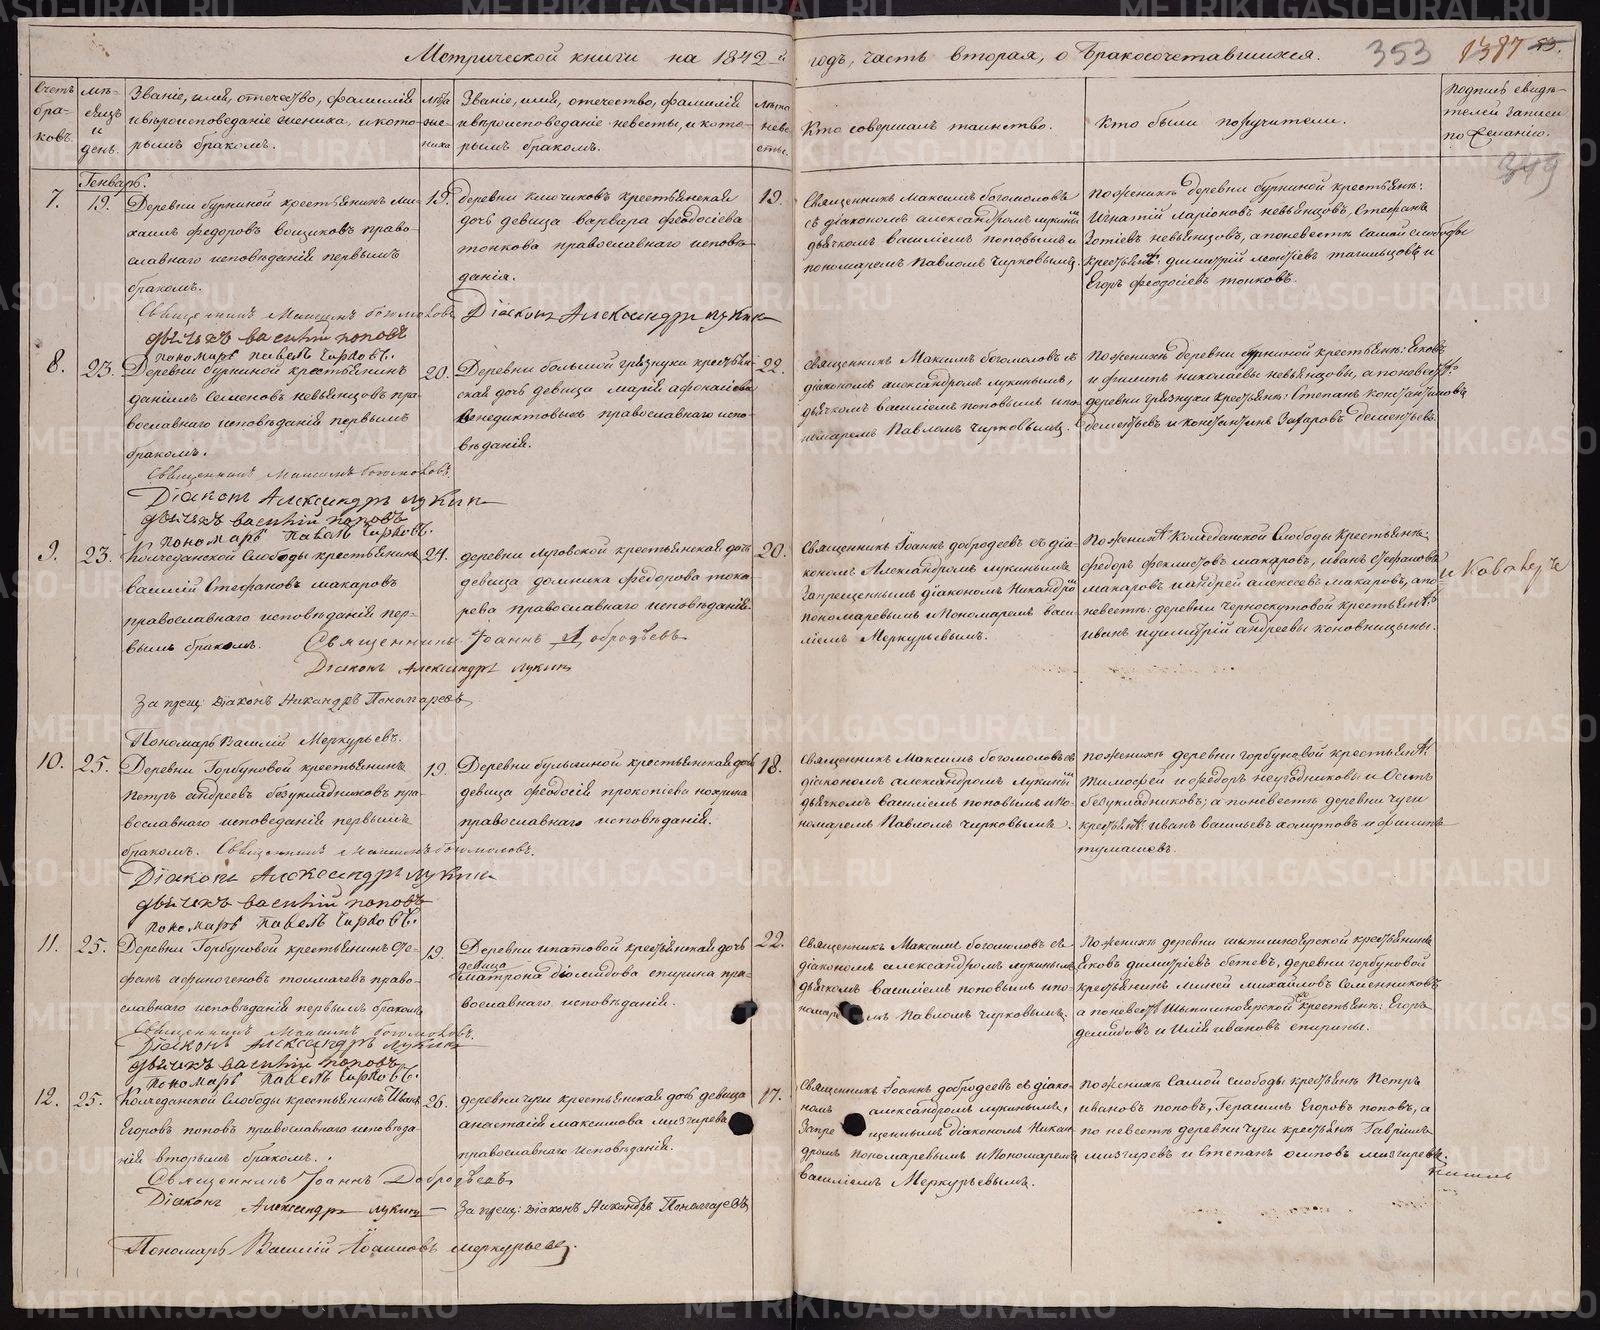 Метрической книги на 1842й годъ, часть вторая, о Бракосочетавшихся.
353 1387
349
Счетъ браковъ.
Мѣсяцъ и день.
Званіе, имя, отечество, фамилія
и вѣроисповеданіе жениха, и кото-
рымъ бракомъ.
лѣта жениха
Званіе, имя, отечество, фамилія
и вѣроисповеданіе невесты, и кото-
рымъ бракомъ.
лѣта невесты.
Кто совершалъ таинство.
Кто были поручители.
Подпись свидѣ-
телей записи
по желанію.
Генварь.
7. 19.
Деревни бурниной крестьянинъ ми-
хаилъ федоровъ вощиковъ право-
славнаго исповѣданія первымъ
бракомъ.
19.
Деревни ключиковъ крестьянская
дочь девица варвара феодосіева
тонкова православнаго исповѣ-
данія.
19.
Священникъ Максимъ богомоловъ
съ діакономъ александромъ лукинымъ
дьячкомъ василіемъ поповымъ и
пономаремъ Павломъ чирковымъ.
По женихѣ деревни бурниной крестьяне:
Игнатій Ларіоновъ невьянцовъ, Стефанъ
Зотіевъ невьянцовъ, а по невестѣ самой слободы
крестьяне: димитрій леонтіевъ тагильцовъ и
Егоръ феодосіевъ тонковъ.
Священникъ Максимъ богомоловъ Діаконъ Александръ лукинъ
дьячекъ василій поповъ
пономарь павелъ Чирковъ.
8. 23.
Деревни бурниной крестьянинъ
даніилъ семеновъ невьянцовъ пра-
вославнаго исповѣданія первымъ
бракомъ.
20.
Деревни большой грязнухи крестьян-
ская дочь девица марія афонасіева
венедиктовыхъ православнаго испо-
вѣданія.
22.
Священникъ Максимъ богомоловъ съ
діакономъ александромъ лукинымъ,
дьячкомъ василіемъ поповымъ и по-
номаремъ Павломъ чирковымъ.
По женихѣ деревни бурниной крестьяне: Яковъ
и филипъ николаевы невьянцовы, а по невестѣ
деревни грязнухи крестьяне: Степанъ константиновъ
дементьевъ и константинъ Захаровъ дементьевъ.
Священникъ Максимъ богомоловъ.
Діаконъ Александръ лукинъ
дьячекъ василій поповъ
пономарь Павелъ Чирковъ.
9. 23.
Колчеданской Слободы крестьянинъ
василій Стефановъ макаровъ
православнаго исповѣданія пер-
вымъ бракомъ.
21.
деревни луговской крестьянская дочь
девица домника федорова тока-
рева православнаго исповѣданія.
20.
Священникъ Іоаннъ добродеевъ съ діа-
кономъ Александромъ лукинымъ
Запрещеннымъ діакономъ Никандромъ
пономаревымъ и Пономаремъ васи-
ліемъ Меркурьевымъ.
По женихѣ Колчеданской Слободы крестьяне:
федоръ феклистовъ макаровъ, иванъ Стефановъ
макаровъ и андрей алексеевъ макаровъ, а по
невестѣ: деревни черноскутовой крестьяне:
иванъ и димитрій андреевы коновницыны.
Священникъ Іоаннъ Добродѣевъ
Діаконъ Александръ лукинъ
Запрещ: Діаконъ Никандръ Пономаревъ
Пономарь Василій Меркурьевъ.
10. 25.
Деревни Горбуновой крестьянинъ
Петръ андреевъ безукладниковъ пра-
вославнаго исповѣданія первымъ
бракомъ.
19.
Деревни бульзиной крестьянская дочь
девица феодосія прокопіева нохрина
православнаго исповѣданія.
18.
Священникъ Максимъ богомоловъ съ
діакономъ александромъ лукинымъ
дьячкомъ василіемъ поповымъ и по-
номаремъ Павломъ чирковымъ.
По женихѣ деревни горбуновой крестьяне:
Тимофей и федоръ неугодниковы и Осипъ
безукладниковъ; а по невестѣ деревни чуги
крестьяне: иванъ васильевъ хомутовъ и филипъ
тумашевъ.
Священникъ Максимъ богомоловъ.
Діаконъ Александръ лукинъ
дьячекъ василій поповъ
пономарь Павелъ Чирковъ.
11. 25.
Деревни Горбуновой крестьянинъ Сте-
фанъ афиногеновъ толмачевъ право-
славнаго исповѣданія первымъ бракомъ
19.
Деревни ипатовой крестьянская дочь
девица
матрона діомидова спирина пра-
вославнаго исповѣданія.
22.
Священникъ Максимъ богомоловъ съ
діакономъ александромъ лукинымъ
дьячкомъ василіемъ поповымъ и по-
номаремъ Павломъ чирковымъ.
По женихѣ деревни шыпишноярской крестьянинъ
Яковъ димитріевъ бетевъ, деревни горбуновой
крестьянинъ михей михайловъ Семенниковъ
а по невестѣ Шыпишноярской крестьяне: Егоръ
демидовъ и илія ивановъ спирины.
Священникъ Максимъ богомоловъ.
Діаконъ Александръ Лукинъ
дьячекъ василій поповъ
пономарь павелъ Чирковъ.
12. 25.
Колчеданской Слободы крестьянинъ Иванъ
Егоровъ поповъ православнаго исповѣда-
нія вторымъ бракомъ.
26.
деревни чуги крестьянская дочь девица
анастасія максимова мизгирева
православнаго исповѣданія.
17.
Священникъ Іоаннъ добродеевъ съ діако-
номъ александромъ лукинымъ,
Запрещеннымъ діакономъ Никан-
дромъ пономаревымъ и Пономаремъ
василіемъ Меркурьевымъ.
По женихѣ Самой слободы крестьяне Петръ
ивановъ поповъ, Герасимъ Егоровъ поповъ, а
по невестѣ деревни чуги крестьяне Гавріилъ
мизгиревъ и Степанъ осиповъ мизгиревъ.
Священникъ Іоаннъ Добродѣевъ
Діаконъ Александръ лукинъ — Запрещ: Діаконъ Никандръ Пономаревъ
Пономарь Василій Іоанновъ меркурьевъ.
METRIKI.GASO-URAL.RU